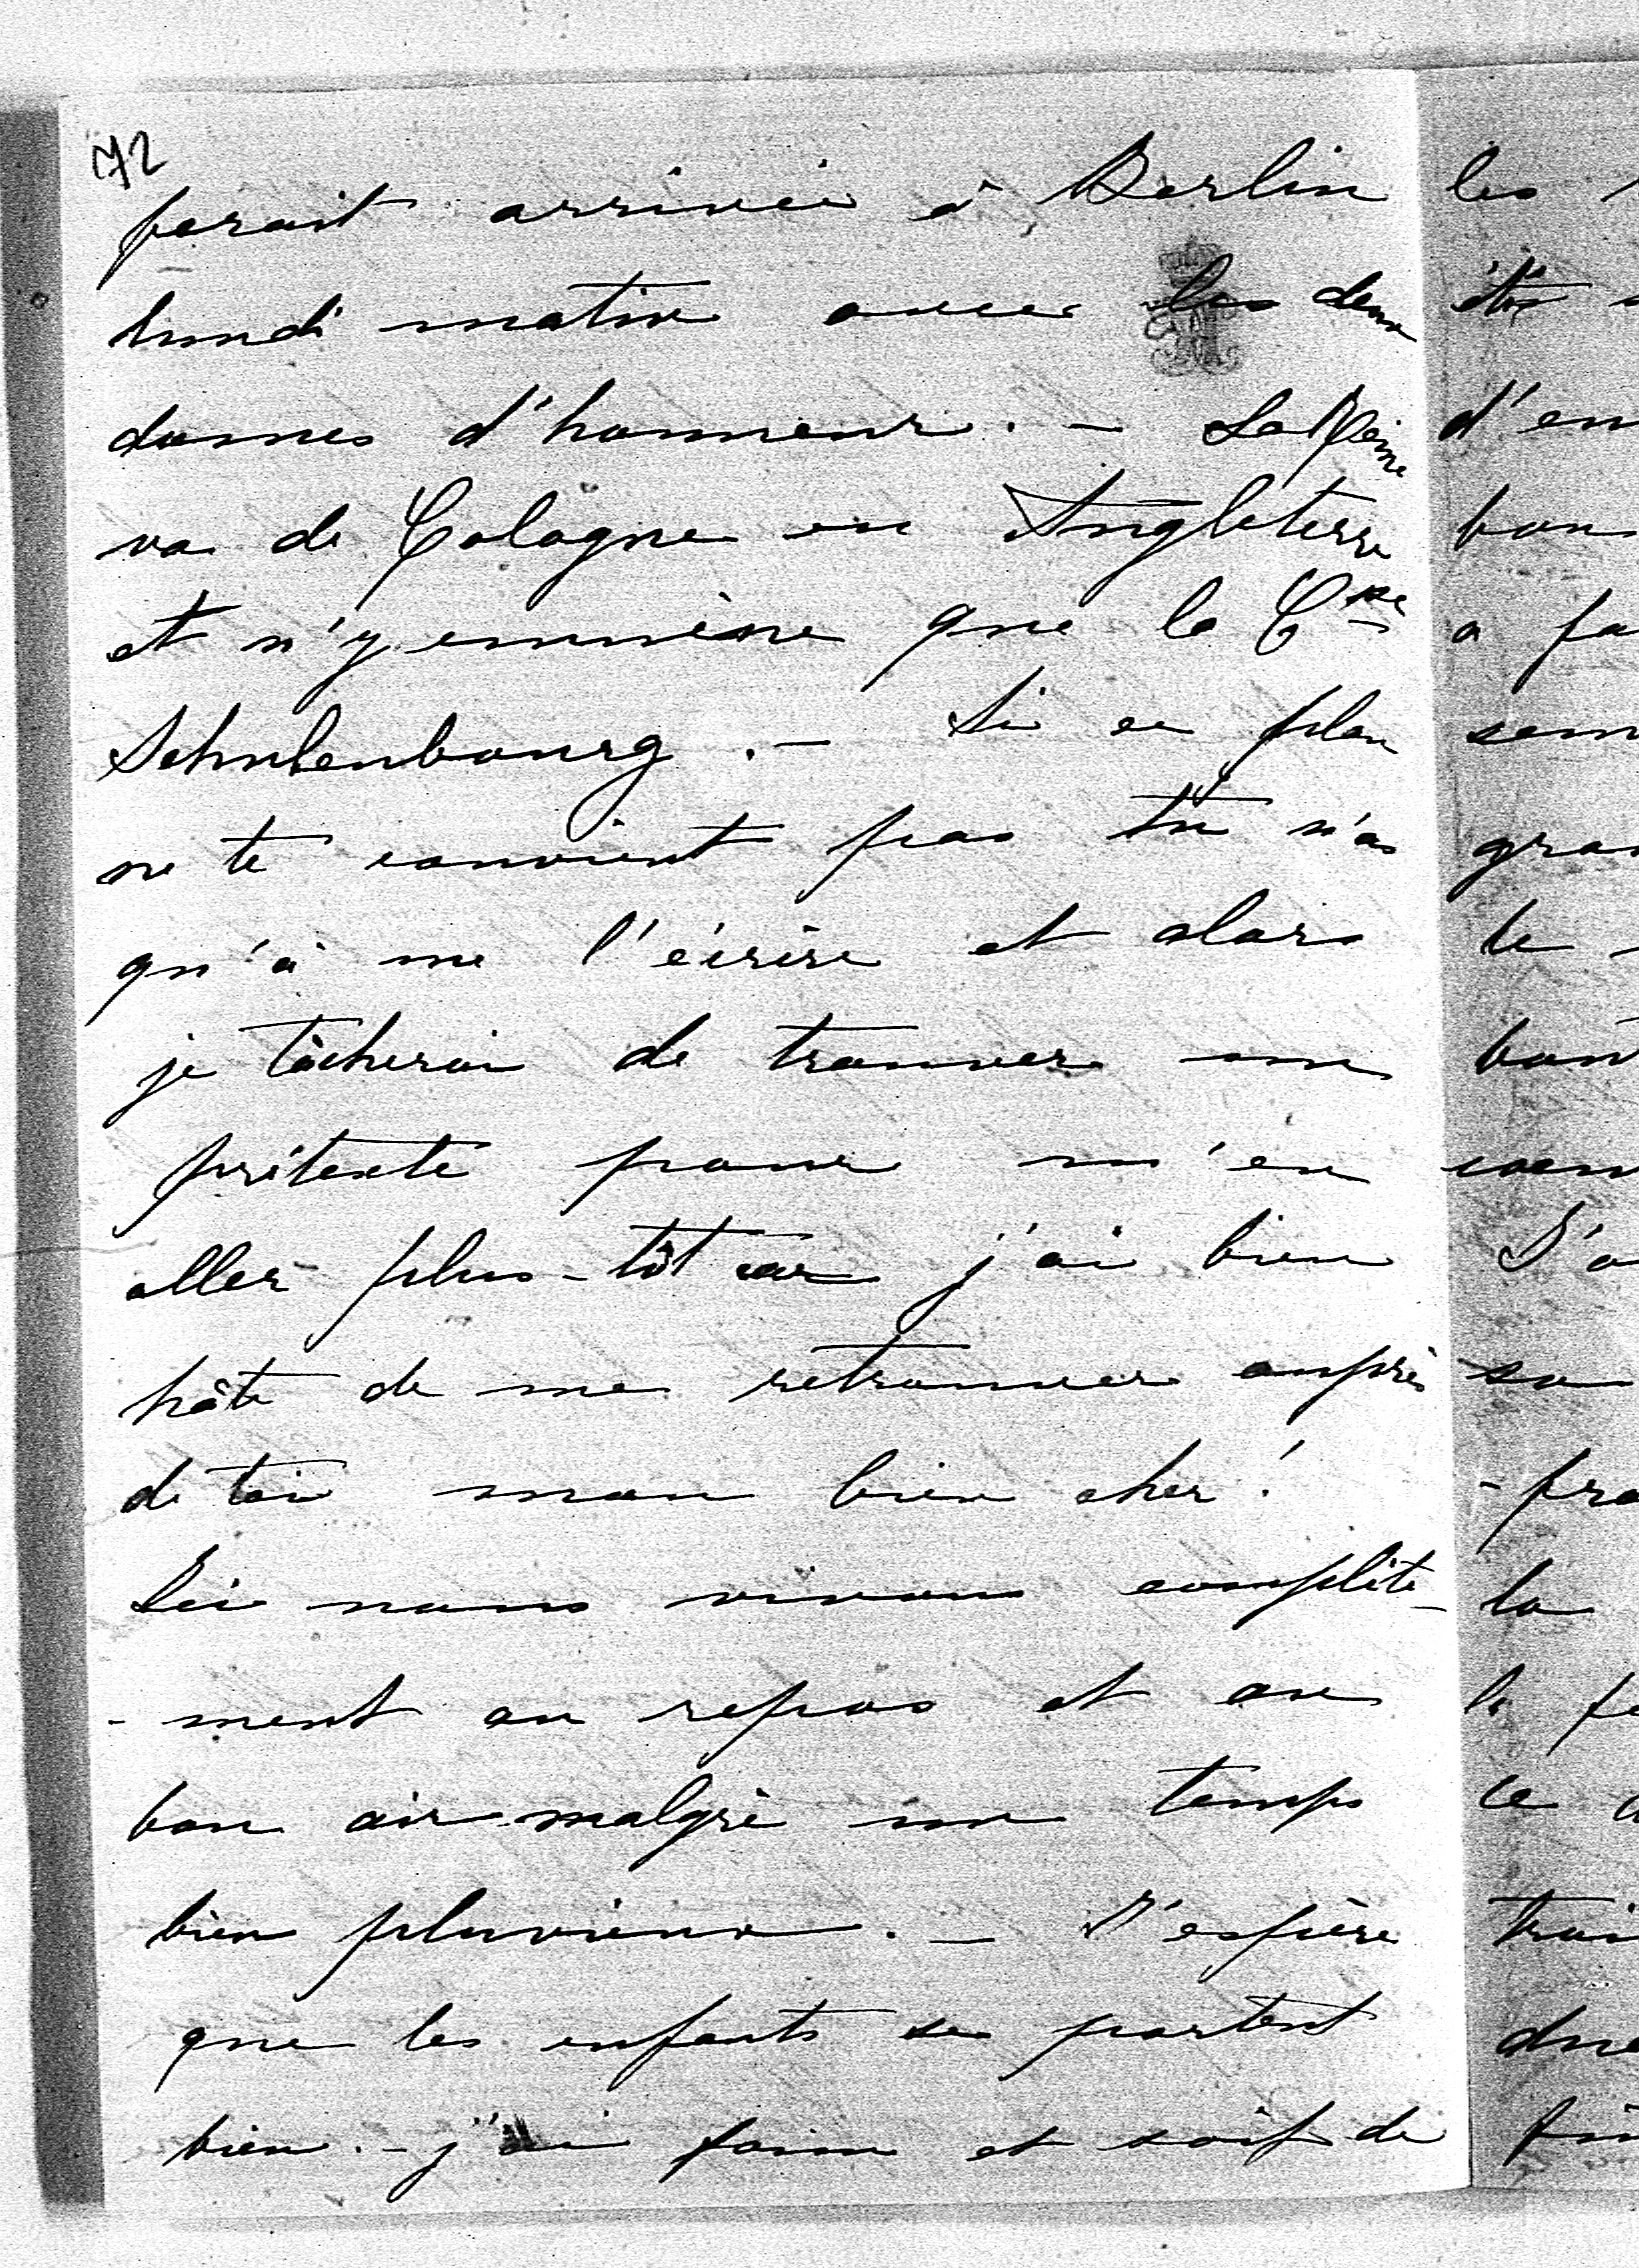 72
ferait arriver à Berlin
lundi matin avec les deux
dames d'honneur. - La Reine
va de Cologne en Angleterre
et n'y emmène que la Csse
Schulenbourg. - Si ce plan
ne te convient pas tu n'as
qu'à me l'écrire et alors
je tâcherai de trouver un
prétexte pour m'en
aller plus-tôt car j'ai bien
hâte de me retrouver auprès
de toi mon bien cher!
Ici nous vivons complète-
-ment au repos et au
bon air malgré un temps
bien pluvieux. - J'espère
que les enfants se portent
bien. - j'ai faim et soif de